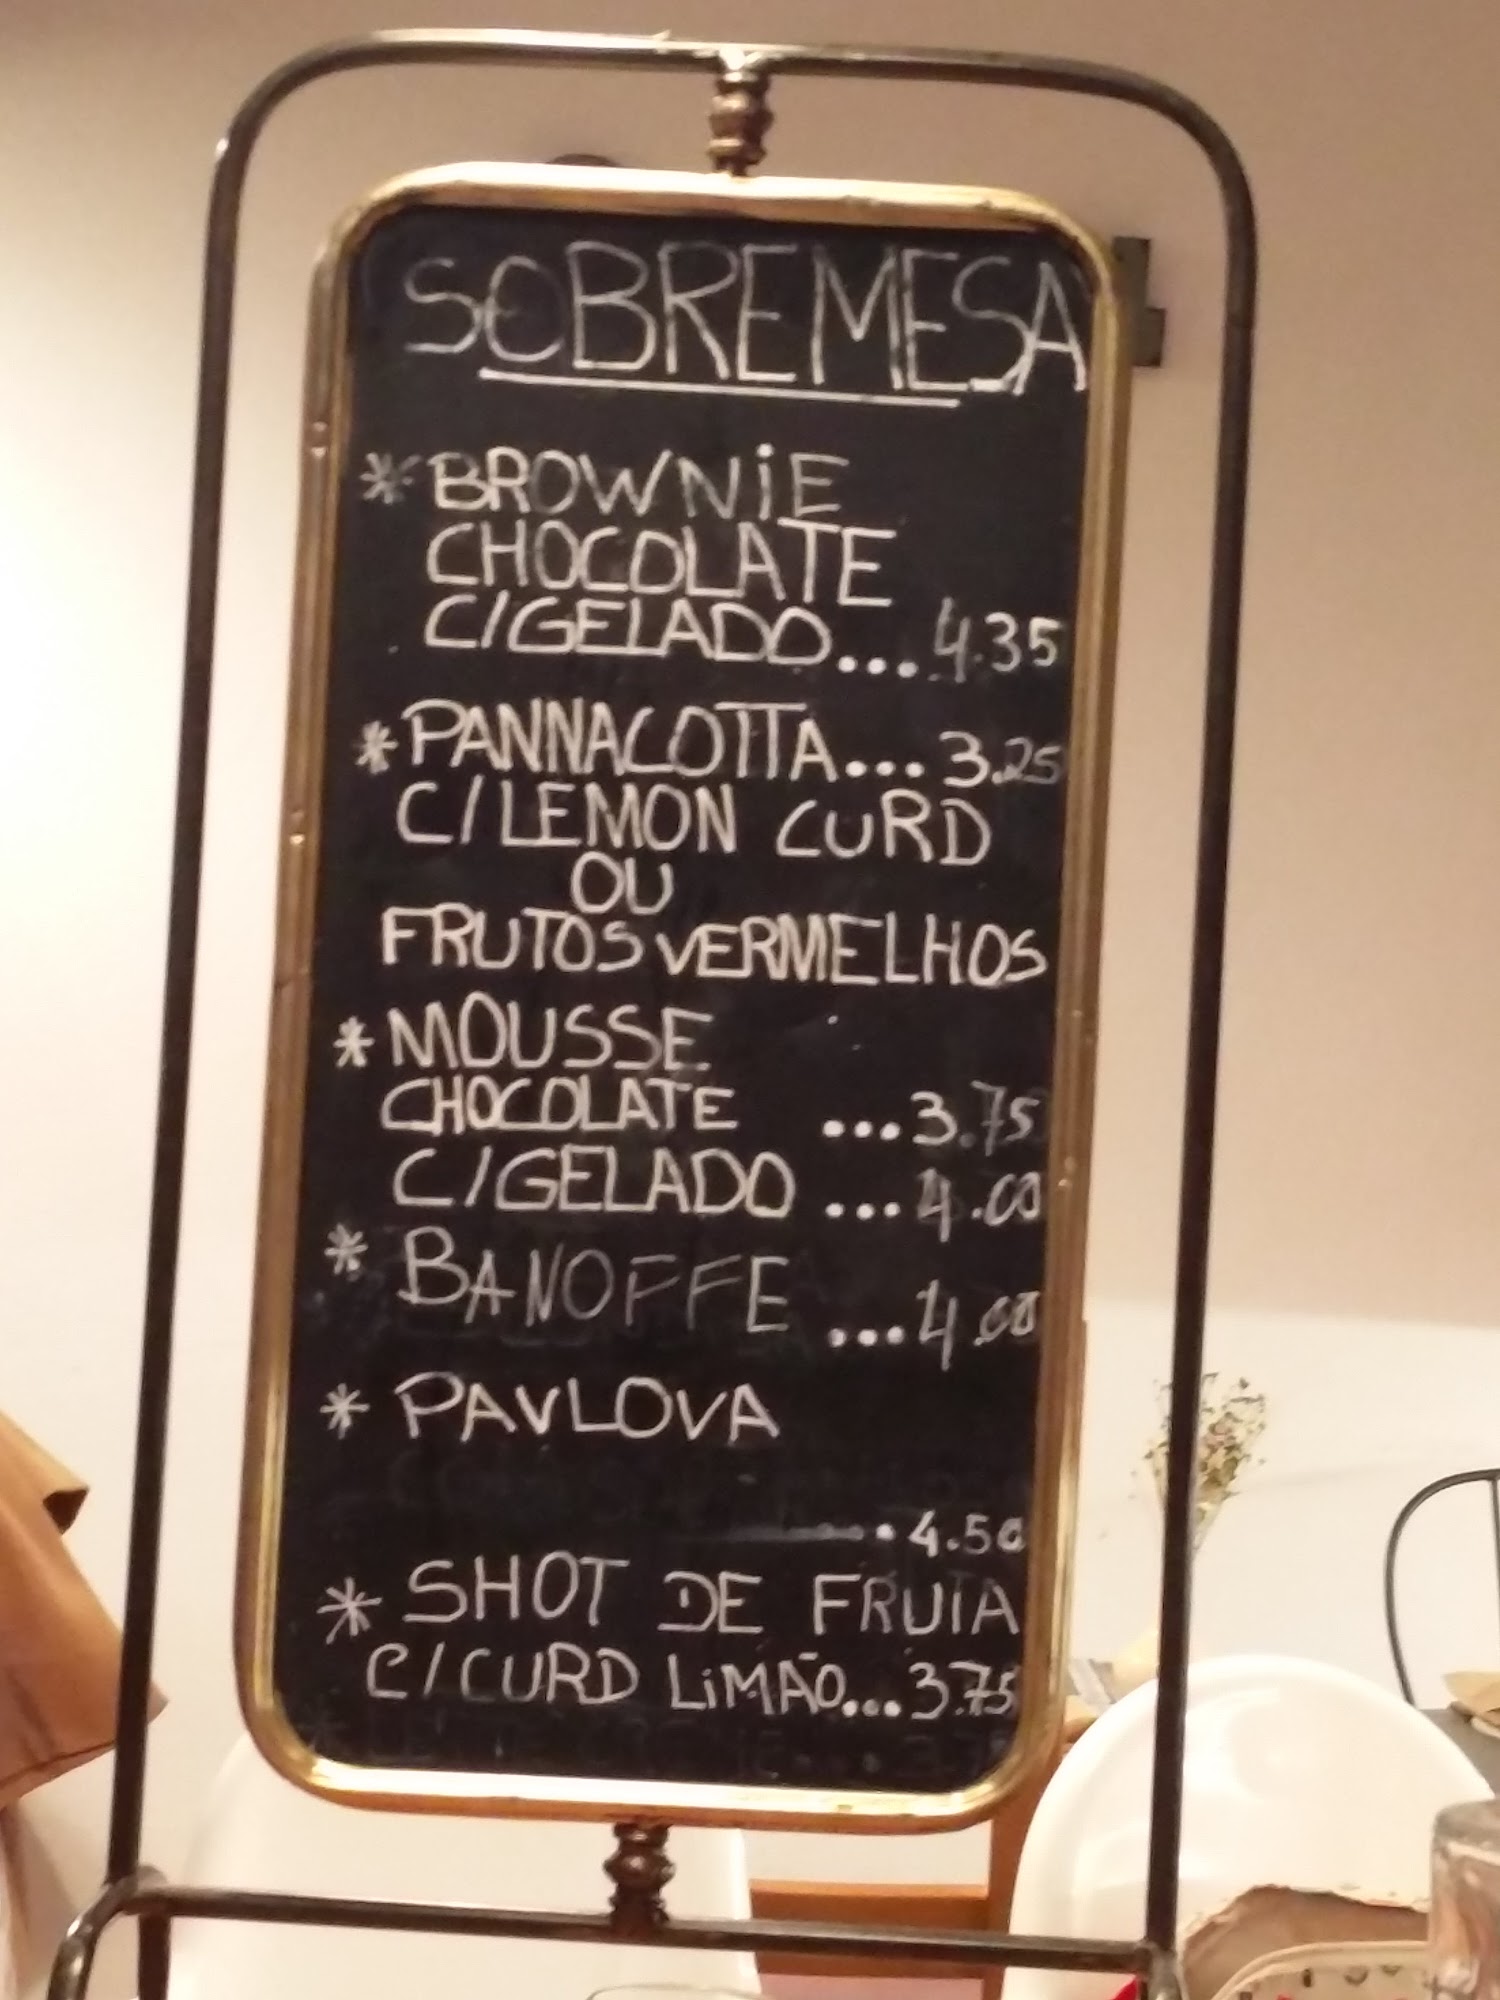 SOBREMESA
* BROWNiE
CHOCOLATE
C/GELADO... 4.35
* PANNACOTTA... 3.25
C/LEMON CURD
OU
FRUTOS VERMELHOS
* MOUSSE
CHOCOLATE ...3.75
C/GELADO ...4.00
* BANOFFE ...4.00
* PAVLOVA
. 4.50
* SHOT DE FRUTA
C/CURD LiMÃO...3.75